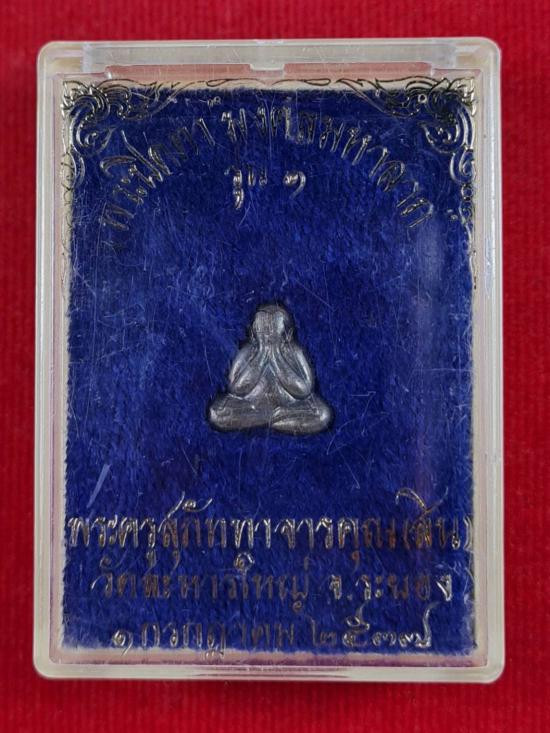 พระปิดตา มงคลมหาลาภ
รุ่น ๑
พระครูสุภัททาจารคุณ(สิน)
วัดละหารใหญ่ จ.ระยอง
๑ กรกฎาคม ๒๕๓๗